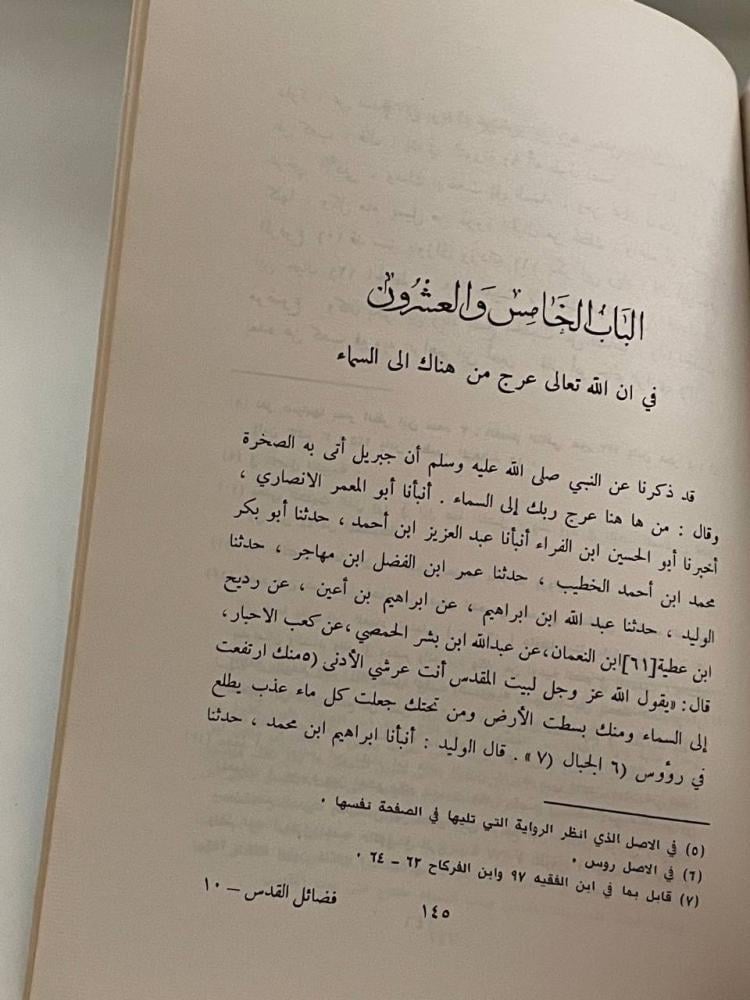 البَابُ الخَامِسْ وَالعِشْرُونْ
في ان الله تعالى عرج من هناك الى السماء
قد ذكرنا عن النبي صلى الله عليه وسلم أن جبريل أتى به الصخرة
وقال : من ها هنا عرج ربك إلى السماء . أنبأنا أبو المعمر الانصاري ،
أخبرنا أبو الحسين ابن الفراء أنبأنا عبد العزيز ابن أحمد ، حدثنا أبو بكر
محمد ابن أحمد الخطيب ، حدثنا عمر ابن الفضل ابن مهاجر ، حدثنا
الوليد ، حدثنا عبد الله ابن ابراهيم ، عن ابراهيم بن أعين ، عن رديح
ابن عطية[٦١]ابن النعمان،عن عبدالله ابن بشر الحمصي ،عن كعب الاحبار،
قال: «يقول الله عز وجل لبيت المقدس أنت عرشي الأدنى (٥منك ارتفعت
إلى السماء ومنك بسطت الأرض ومن تحتك جعلت كل ماء عذب يطلع
في رؤوس (٦ الجبال (٧» . قال الوليد : أنبأنا ابراهيم ابن محمد ، حدثنا
(٥) في الاصل الذي انظر الرواية التي تليها في الصفحة نفسها .
(٦) في الاصل روس .
(٧) قابل بما في ابن الفقيه ٩٧ وابن الفركاح ٦٢ – ٦٤ .
١٤٥
فضائل القدس – ١٠